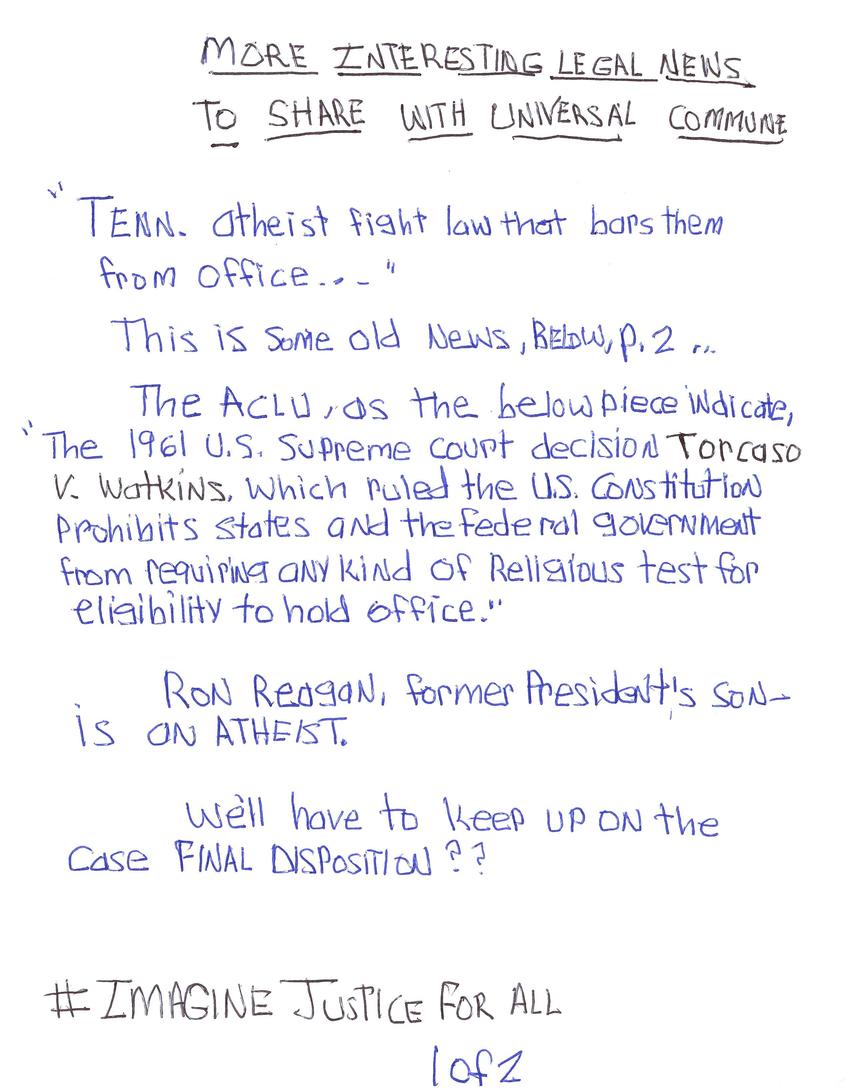 MORE INTERESTING LEGAL NEWS
TO SHARE WITH UNIVERSAL COMMUNE
"TENN. atheist fight law that bars them
from office... "
This is some old News, BELOW, p. 2 ...
The ACLU, as the below piece indicate,
"The 1961 U.S. Supreme court decision Torcaso
V. Watkins, which ruled the U.S. Constitution
Prohibits states and the federal government
from requiring any kind of Religious test for
eligibility to hold office."
Ron Reagan, former President's son-
is an ATHEIST.
We'll have to keep up on the
Case FINAL DISPOSITION??
#IMAGINE JUSTICE FOR ALL
1 of 2